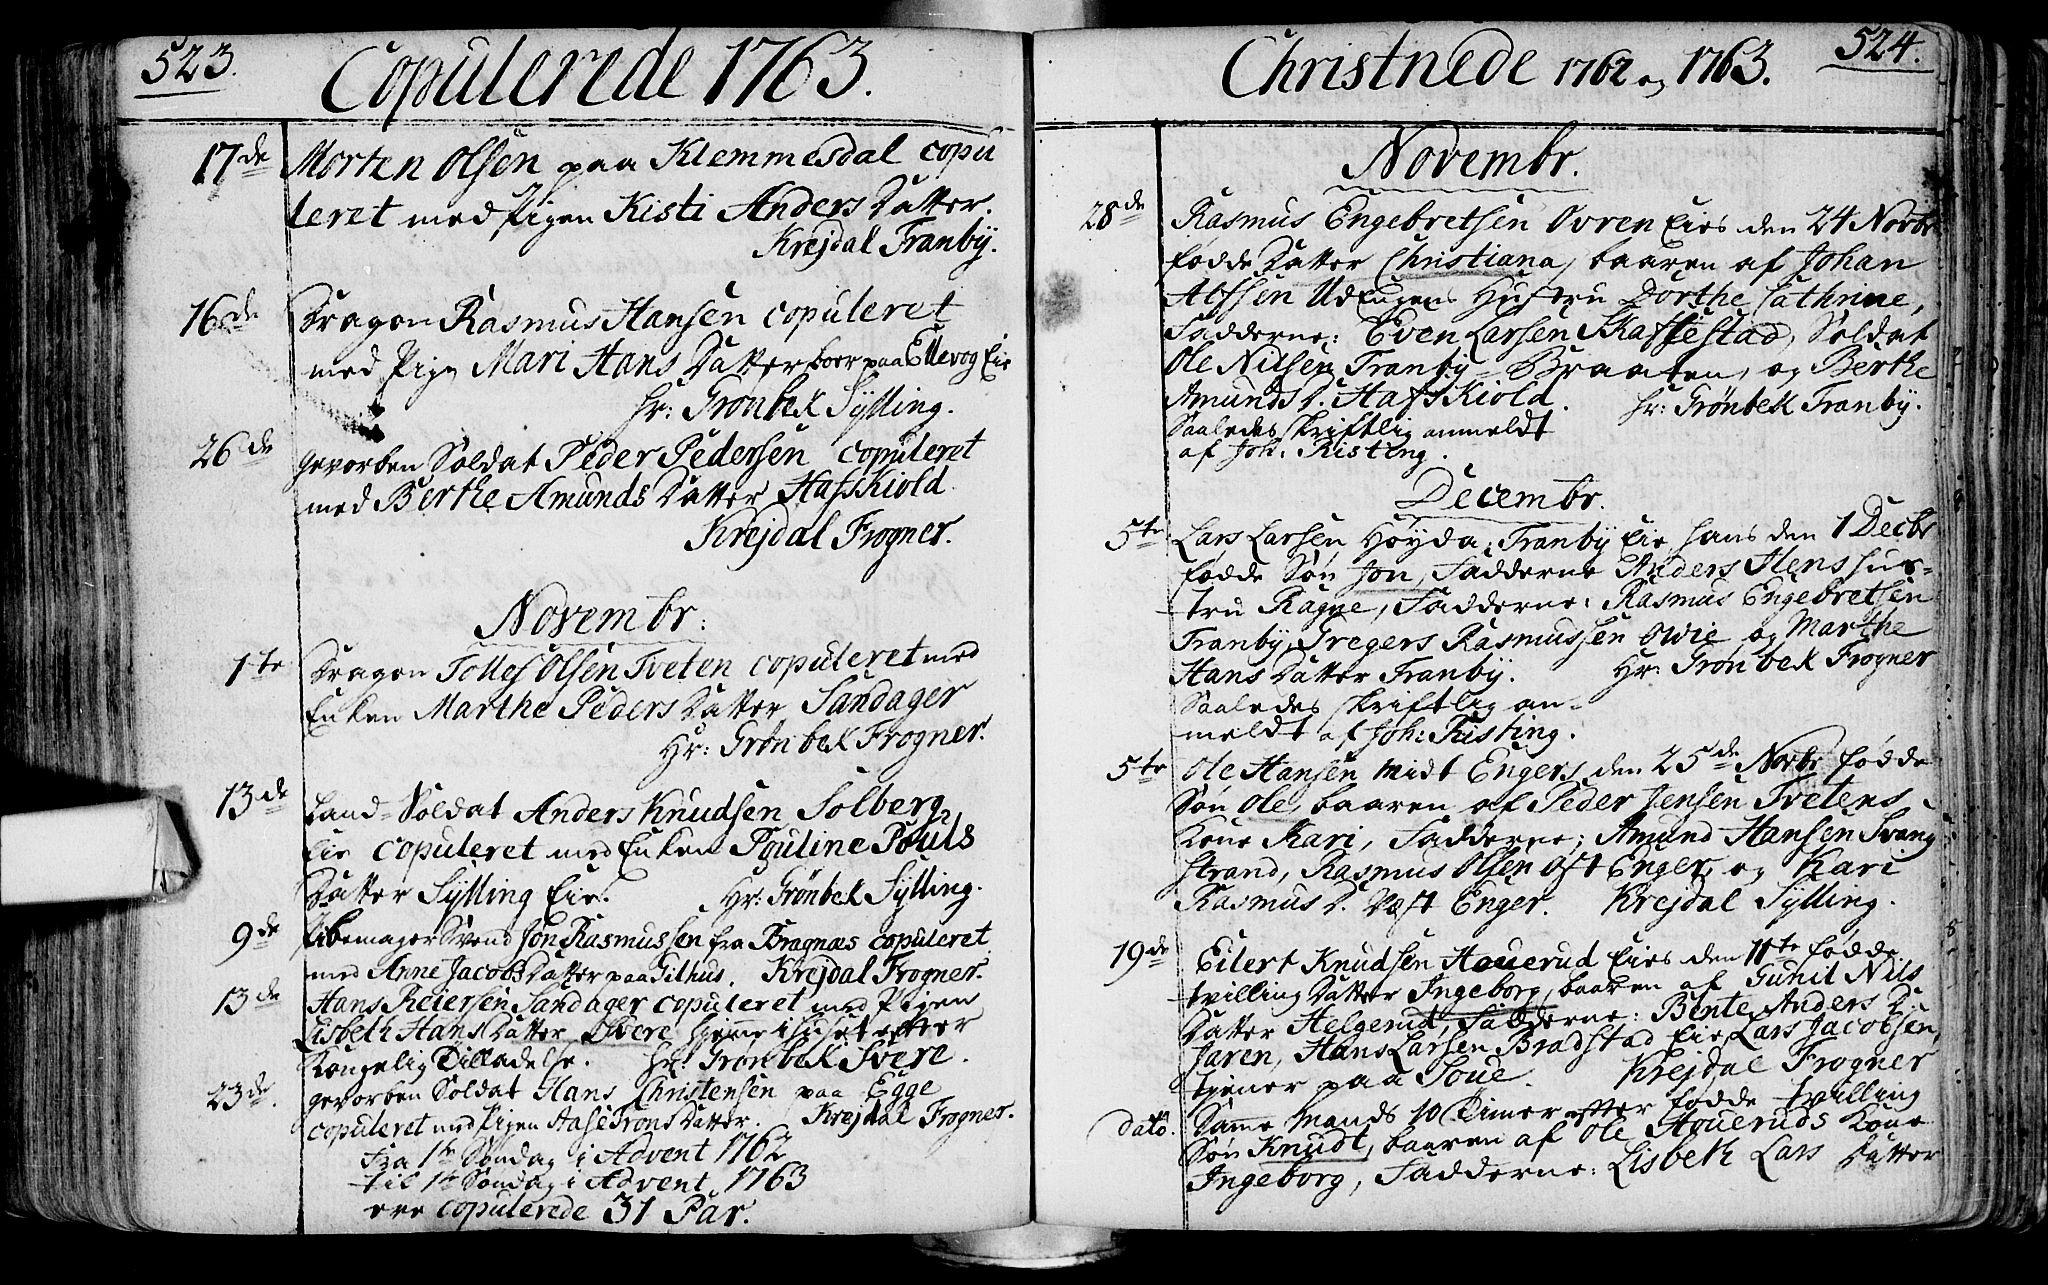 523.
Copulerede 1763.
17de Morten Olsen paa Klemmesdal copu
leret med Pigen Kisti Anders Datter.
Krejdal Franby.
16de Dragon Rasmus Hansen copuleret
med Pige Mari Hans Datter boer paa Ellevog Eie
Hr: Grønbek Sylling.
26de gevorben Soldat Peder Pedersen copuleret
med Berthe Amunds Datter Hafskiold.
Krejdal Frogner.
Novembr:
1te Dragon Tollef Olsen Tveten copuleret med
Enken Marthe Peders Datter Sandager
Hr: Grønbek Frogner.
13de Land-Soldat Anders Knudsen Solberg
Eie copuleret med Enken Pouline Pouls
Datter Sylling Eie. Hr: Grønbek Sylling.
9de Pibemager Svend Jon Rasmussen fra Bragnæs copuleret
med Anne Jacobs Datter paa Gilhus. Krejdal Frogner.
13de Hans Reiersen Sandager copuleret med Pigen
Lisbeth Hans Datter hiemme i Huset efter
Kongelig Tilladelse. Hr: Grønbek
23de. gevorben Soldat Hans Christensen paa Egge
copuleret med Pigen Aase Trons Datter. Krejdal Frogner.
Fra 1te Søndag i Advent 1762
til 1te Søndag i Advent 1763
ere copulerede 31 Par.
524.
Christnede 1762 og 1763.
Novembr.
28de Rasmus Engebretsen Ovren Eies den 24 Novbr
fødde Datter Christiana, baaren af Johan
Alfsen Udengens Hustru Dorthe Cathrine,
Fadderne: Even Larsen Skaffestad, Soldat
Ole Nilsen Franby-Braaten, og Berthe
Amunds D. Hafskiold. Hr: Grønbek Franby.
Saaledes skriftlig anmeldt
af Joh: Risting.
Decembr.
5te Lars Larsen Høyda, Franby Eie hans den 1 Decbr
fødde Søn Jon, Fadderne Anders Hens Hus-
tru Ragne, Fadderne: Rasmus Engebretsen
Franby, Gregers Rasmussen Owie, og Marthe
Hans Datter Franby. Hr: Grønbek Frogner
Saaledes skriftlig an-
meldt af Joh: Risting.
5te Ole Hansen Midt Engers den 25de Novbr fødde
Søn Ole, baaren af Peder Jensen Tvetens
Kone Kari, Fadderne; Amund Hansen Svang
strand, Rasmus Olsen Øst Enger, og Kari
Rasmus D. Væst Enger. Krejdal Sylling.
19de Eilert Knudsen Houerud Eies den 11te fødde
tvilling Datter Ingeborg, baaren af Gunil Nils
Datter Helgerud, Fadderne: Bente Anders D.
Jaren, Hans Larsen Bradstad Eie Lars Jacobsen,
tjener paa Soue. Krejdal Frogner
dato. Samme Mands 10 Timer efter fødde tvilling
Søn Knudt, baaren af Ole Houeruds Kone
Ingeborg, Fadderne: Lisbeth Lars Datter